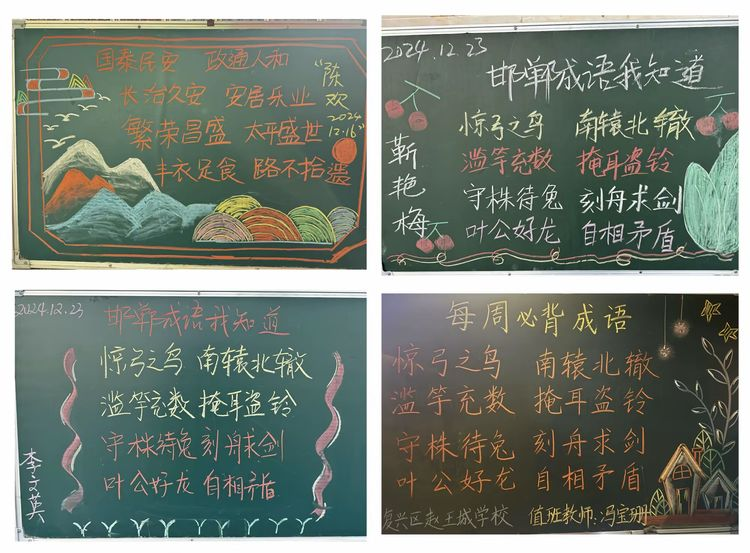 国泰民安 政通人和
长治久安 安居乐业
繁荣昌盛 太平盛世
丰衣足食 路不拾遗
“陈
欢
2024
12.16”
2024.12.23
邯郸成语我知道
惊弓之鸟 南辕北辙
滥竽充数 掩耳盗铃
守株待兔 刻舟求剑
叶公好龙 自相矛盾
靳艳梅
2024.12.23
邯郸成语我知道
惊弓之鸟 南辕北辙
滥竽充数 掩耳盗铃
守株待兔 刻舟求剑
叶公好龙 自相矛盾
李文英
每周必背成语
惊弓之鸟 南辕北辙
滥竽充数 掩耳盗铃
守株待兔 刻舟求剑
叶公好龙 自相矛盾
复兴区赵王城学校 值班教师:冯宝珊